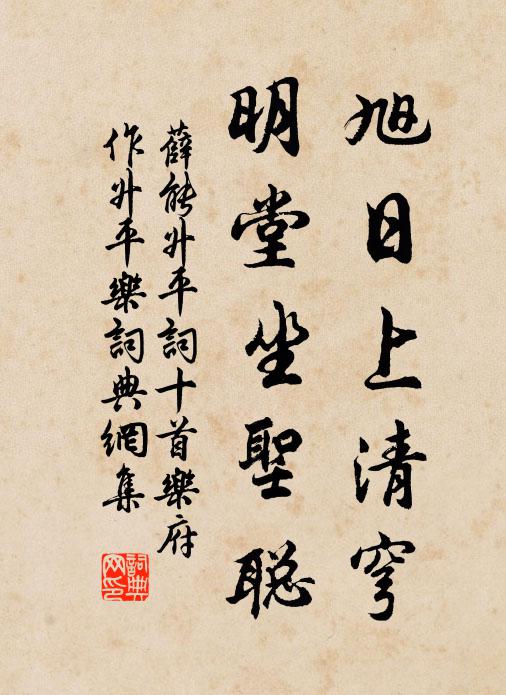 旭日上清穹
明堂坐聖聰
薛能升平詞十首樂府
作升平樂詞典網集
詞典網印